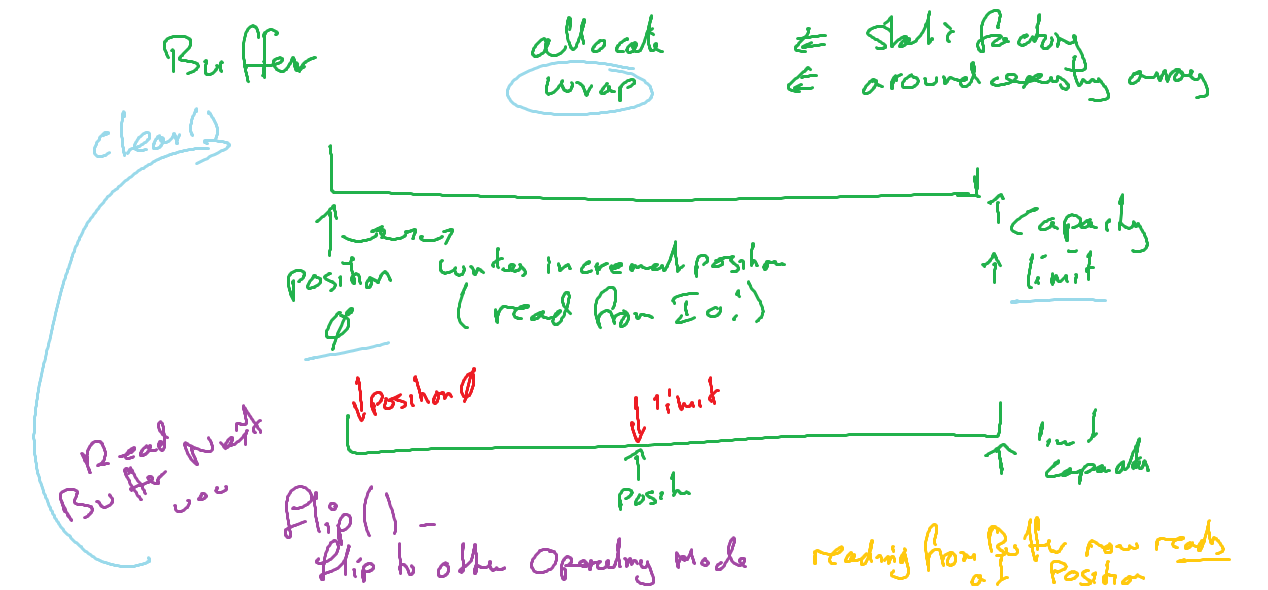 Buffer
allocate ⇐ static factory
wrap ⇐ around existing array
clear()
↑ Capacity
position
∅
writes increment position
(read from IO:)
↑ limit
↓ position ∅
↓ limit
Read Next
Buffer
↑
Positn
↑ limit
capacity
flip() –
flip to other Operating mode
reading from Buffer now reads
at Position